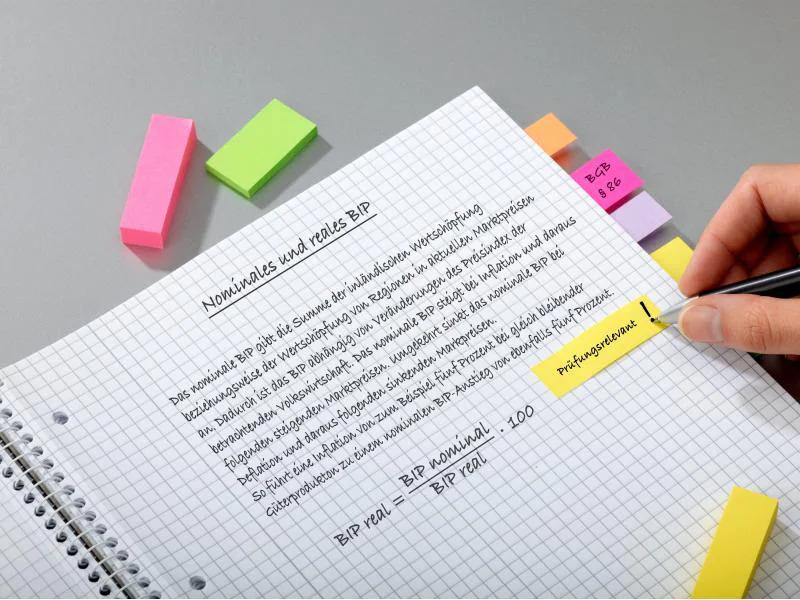 Nominales und reales BIP
Das nominale BIP gibt die Summe der inländischen Wertschöpfung
beziehungsweise der Wertschöpfung von Regionen in aktuellen Marktpreisen
an. Dadurch ist das BIP abhängig von Veränderungen des Preisindex der
betrachtenden Volkswirtschaft. Das nominale BIP steigt bei Inflation und daraus
folgenden steigenden Marktpreisen. Umgekehrt sinkt das nominale BIP bei
Deflation und daraus folgenden sinkenden Marktpreisen.
So führt eine Inflation von zum Beispiel fünf Prozent bei gleich bleibender
Güterproduktion zu einem nominalen BIP-Anstieg von ebenfalls fünf Prozent.
BIP real = BIP nominal / BIP real · 100
BGB
§ 86
Prüfungsrelevant !